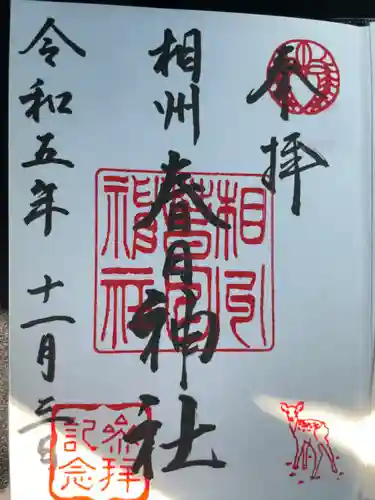 奉拝
相州春日神社
相州春日神社
令和五年十一月三日
参拝記念